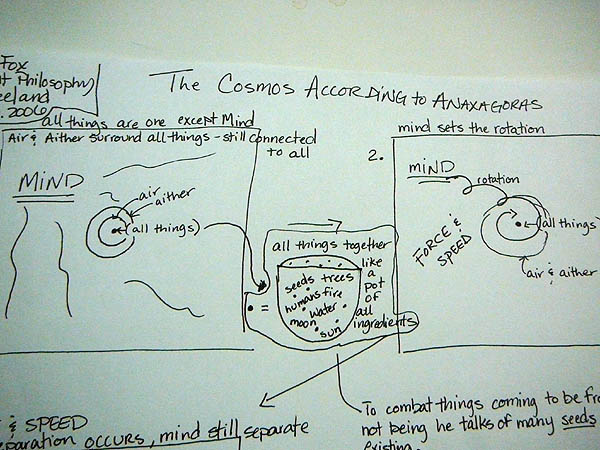 Fox
Philosophy
2006
The Cosmos According to Anaxagoras
all things are one except Mind
Air & Aither surround all things - still connected
to all
MIND
air
aither
(all things)
all things together
seeds trees
humans fire
water
moon
sun
like
a
pot
of
all
ingredients
=
2.
mind sets the rotation
MIND
rotation
FORCE &
SPEED
(all things)
air & aither
& SPEED
OCCURS, mind still separate
To combat things coming to be
not being he talks of many seeds
existing.